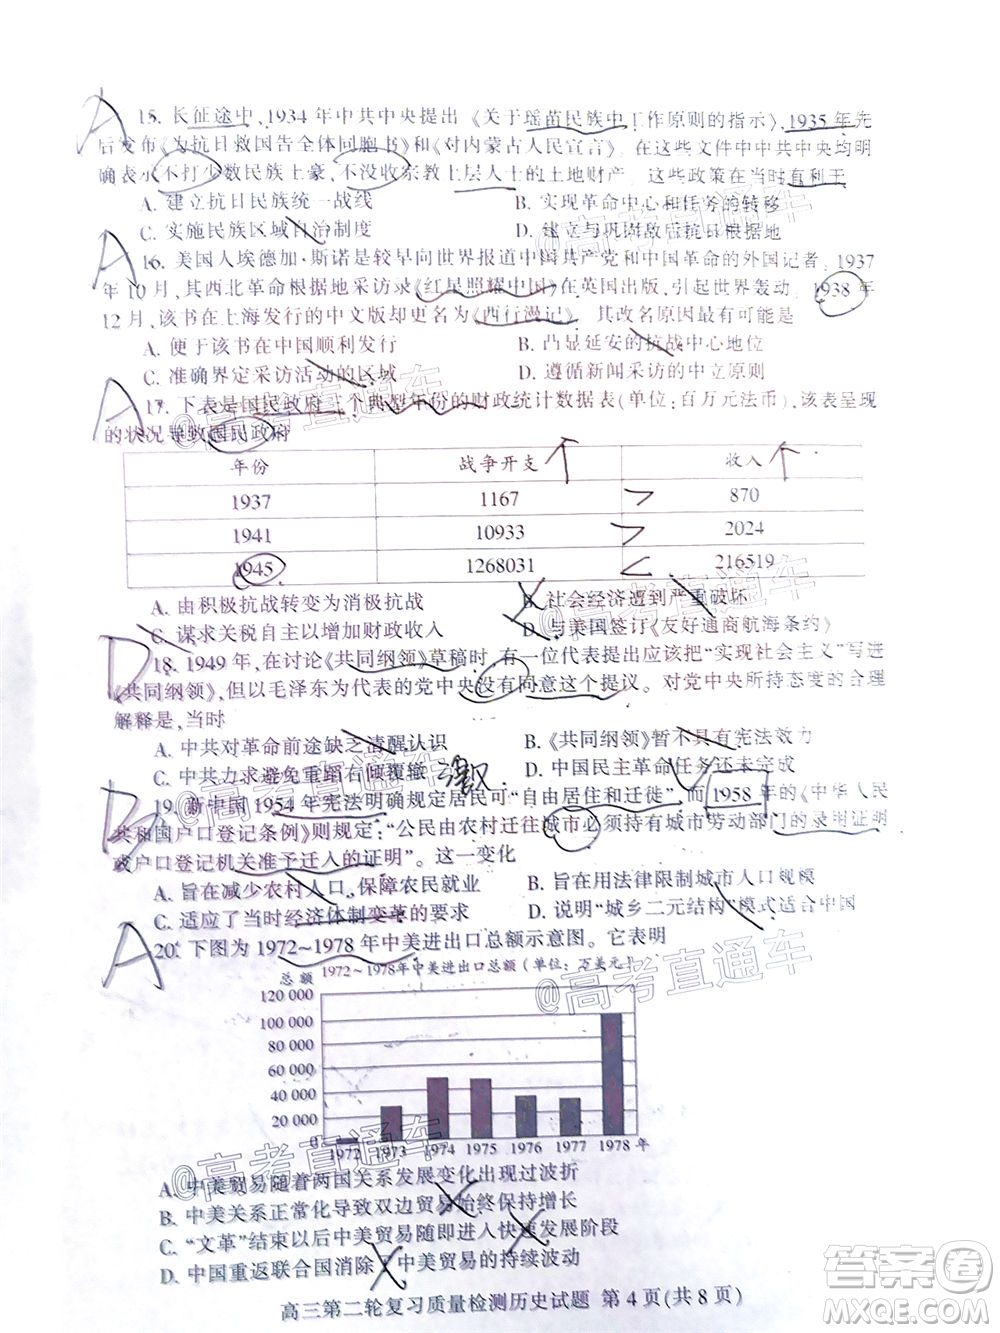 A
15. 长征途中,1934年中共中央提出《关于瑶苗民族中工作原则的指示》,1935年先
后发布《为抗日救国告全体同胞书》和《对内蒙古人民宣言》。在这些文件中中共中央均明
确表示不打少数民族土豪,不没收宗教上层人士的土地财产。这些政策在当时有利于
A. 建立抗日民族统一战线 B. 实现革命中心和任务的转移
C. 实施民族区域自治制度 D. 建立与巩固敌后抗日根据地
A
16. 美国人埃德加·斯诺是较早向世界报道中国共产党和中国革命的外国记者。1937
年10月,其西北革命根据地采访录《红星照耀中国》在英国出版,引起世界轰动。1938年
12月,该书在上海发行的中文版却更名为《西行漫记》。其改名原因最有可能是
A. 便于该书在中国顺利发行 B. 凸显延安的抗战中心地位
C. 准确界定采访活动的区域 D. 遵循新闻采访的中立原则
A
17. 下表是国民政府三个典型年份的财政统计数据表(单位:百万元法币),该表呈现
的状况导致国民政府
年份 战争开支 收入
1937 1167 > 870
1941 10933 > 2024
1945 1268031 < 216519
A. 由积极抗战转变为消极抗战 B. 社会经济遭到严重破坏
C. 谋求关税自主以增加财政收入 D. 与美国签订《友好通商航海条约》
D
18. 1949年,在讨论《共同纲领》草稿时,有一位代表提出应该把“实现社会主义”写进
《共同纲领》,但以毛泽东为代表的党中央没有同意这个提议。对党中央所持态度的合理
解释是,当时
A. 中共对革命前途缺乏清醒认识 B. 《共同纲领》暂不具有宪法效力
C. 中共力求避免重蹈右倾覆辙 D. 中国民主革命任务还未完成
B
19. 新中国1954年宪法明确规定居民可“自由居住和迁徙”,而1958年的《中华人民
共和国户口登记条例》则规定:“公民由农村迁往城市必须持有城市劳动部门的录用证明
或户口登记机关准予迁入的证明”。这一变化
A. 旨在减少农村人口,保障农民就业 B. 旨在用法律限制城市人口规模
C. 适应了当时经济体制变革的要求 D. 说明“城乡二元结构”模式适合中国
A
20. 下图为1972~1978年中美进出口总额示意图。它表明
总额 1972~1978年中美进出口总额(单位:万美元)
120 000
100 000
80 000
60 000
40 000
20 000
0
1972 1973 1974 1975 1976 1977 1978 年
A. 中美贸易随着两国关系发展变化出现过波折
B. 中美关系正常化导致双边贸易始终保持增长
C. “文革”结束以后中美贸易随即进入快速发展阶段
D. 中国重返联合国消除了中美贸易的持续波动
高三第二轮复习质量检测历史试题 第4页(共8页)
@高考直通车
@高考直通车
@高考直通车
@高考直通车
@高考直通车
@高考直通车
@高考直通车
答案圈
MXQE.COM